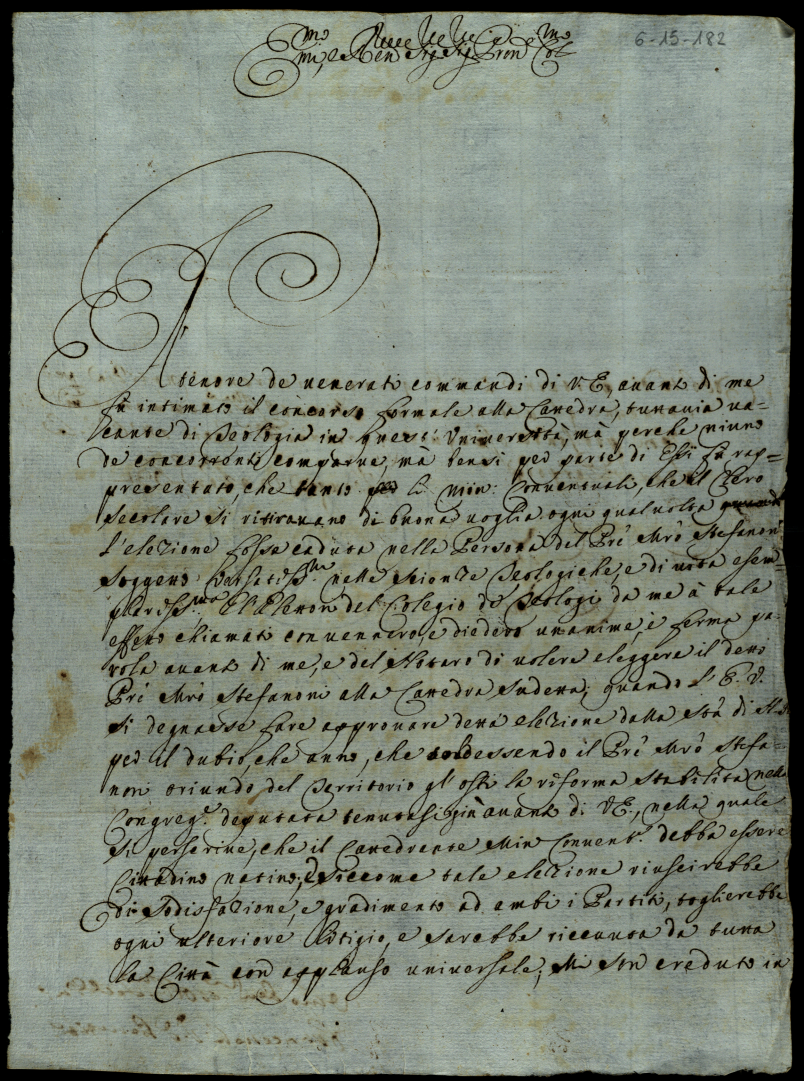 6-15-182
Emo
mi, e Ren Sig Sig Pron Col
A tenore de venerati commandi di V E, avanti di me
fù intimato il concorso formale alla Cattedra, tuttavia va-
cante di Teologia in questa Università, mà perche niuno
de concorrenti comparve, mà bensi per parte di Essi fù rap=
presentato, che tanto li Min: Conventuali, che il Clero
secolare si ritiravano di buona voglia ogni qualvolta
l'elezione fosse caduta nella Persona del Pre Mro Stefanoni
soggetto versatissmo nelle scienze Teologiche, e di vita esem
plarissma. Gl'Elettori del Colegio de Teologi da me à tale
effetto chiamati convennero, e diedero unanime, e ferma pa-
rola avanti di me, e del Notaro di volere eleggere il detto
Pre Mro Stefanoni alla Cattedra sudetta; quando l'E. V.
si degnasse fare approvare detta elezione dalla Stà di
per il dubio, che anno, che essendo il Pre Mro Stefa-
noni oriundo del Territorio gl'osti la riforma stabilita nella
Congreg.e deputata tenutasi già avanti di V E., nella quale
si perscrive, che il Cattedrante Min Convent.e debba essere
Cittadino nativo; E siccome tale elezione riuscirebbe
di sodisfazione, e gradimento ad ambi i Partiti, toglierebbe
ogni ulteriore litigio, e sarebbe ricevuta da tutta
la Città con applauso universale; Mi son creduto in